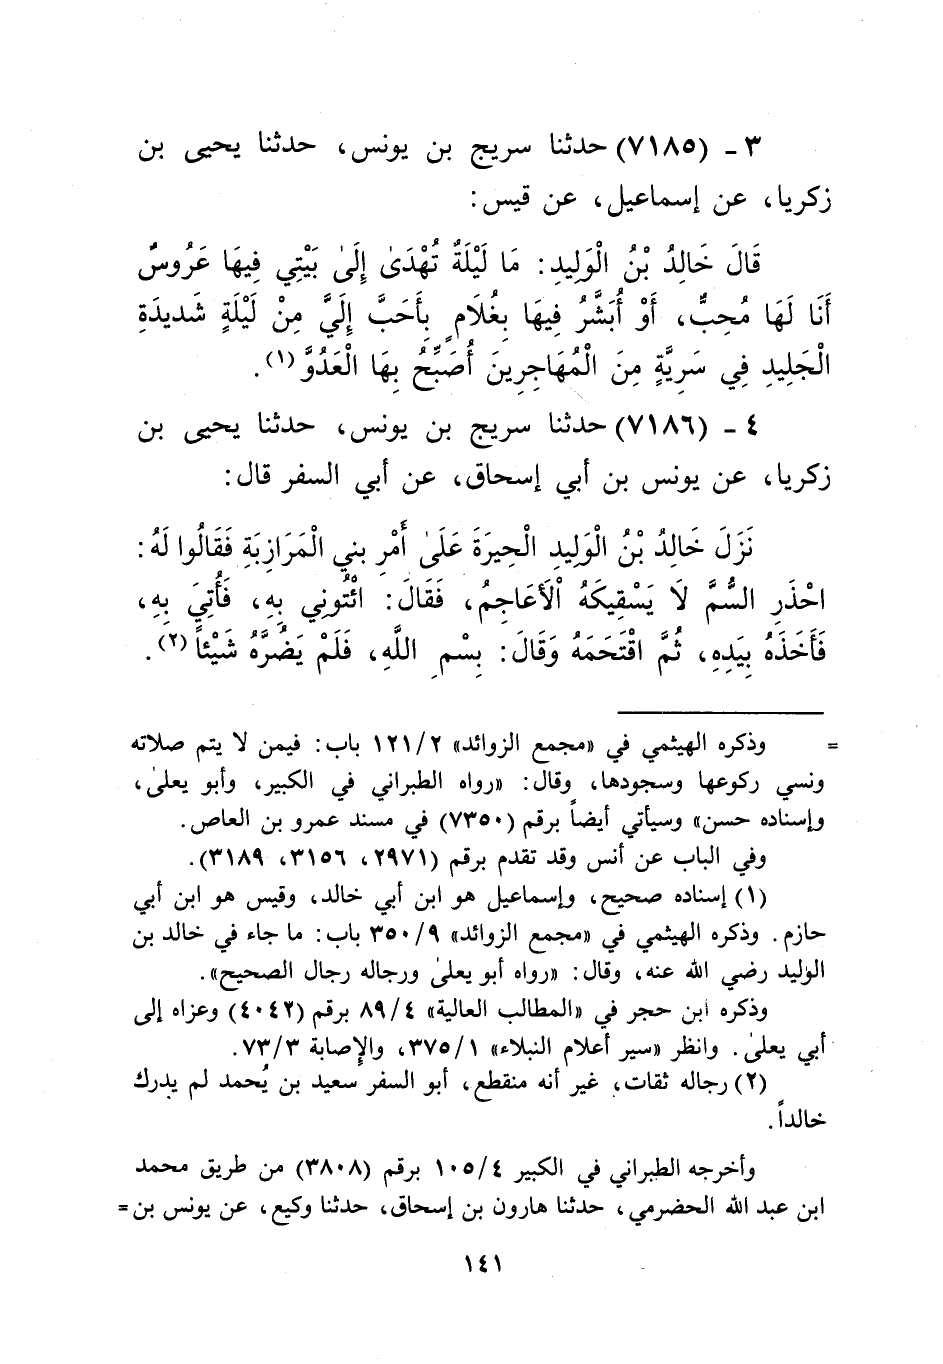 ٣ - (٧١٨٥) حدثنا سريج بن يونس، حدثنا يحيى بن
زكريا، عن إسماعيل، عن قيس:
قَالَ خَالِدُ بْنُ الْوَلِيدِ: مَا لَيْلَةٌ تُهْدَىٰ إِلَىٰ بَيْتِي فِيهَا عَرُوسٌ
أَنَا لَهَا مُحِبٌّ، أَوْ أُبَشَّرُ فِيهَا بِغُلَامٍ بِأَحَبَّ إِلَيَّ مِنْ لَيْلَةٍ شَدِيدَةِ
الْجَلِيدِ فِي سَرِيَّةٍ مِنَ الْمُهَاجِرِينَ أُصَبِّحُ بِهَا الْعَدُوَّ (١).
٤ - (٧١٨٦) حدثنا سريج بن يونس، حدثنا يحيى بن
زكريا، عن يونس بن أبي إسحاق، عن أبي السفر قال:
نَزَلَ خَالِدُ بْنُ الْوَلِيدِ الْحِيرَةَ عَلَىٰ أَمْرِ بنِي الْمَرَازِبَةِ فَقَالُوا لَهُ:
احْذَرِ السُّمَّ لَا يَسْقِيكَهُ الْأَعَاجِمُ، فَقَالَ: ائْتُونِي بِهِ، فَأُتِيَ بِهِ،
فَأَخَذَهُ بِيَدِهِ، ثُمَّ اقْتَحَمَهُ وَقَالَ: بِسْمِ اللَّهِ، فَلَمْ يَضُرَّهُ شَيْئاً (٢).
= وذكره الهيثمي في «مجمع الزوائد» ١٢١/٢ باب: فيمن لا يتم صلاته
ونسي ركوعها وسجودها، وقال: «رواه الطبراني في الكبير، وأبو يعلىٰ،
وإسناده حسن» وسيأتي أيضاً برقم (٧٣٥٠) في مسند عمرو بن العاص.
وفي الباب عن أنس وقد تقدم برقم (٢٩٧١، ٣١٥٦، ٣١٨٩).
(١) إسناده صحيح، وإسماعيل هو ابن أبي خالد، وقيس هو ابن أبي
حازم. وذكره الهيثمي في «مجمع الزوائد» ٣٥٠/٩ باب: ما جاء في خالد بن
الوليد رضي الله عنه، وقال: «رواه أبو يعلىٰ ورجاله رجال الصحيح».
وذكره ابن حجر في «المطالب العالية» ٨٩/٤ برقم (٤٠٤٢) وعزاه إلى
أبي يعلىٰ. وانظر «سير أعلام النبلاء» ٣٧٥/١، والإصابة ٧٣/٣.
(٢) رجاله ثقات، غير أنه منقطع، أبو السفر سعيد بن يُحمد لم يدرك
خالداً.
وأخرجه الطبراني في الكبير ١٠٥/٤ برقم (٣٨٠٨) من طريق محمد
ابن عبد الله الحضرمي، حدثنا هارون بن إسحاق، حدثنا وكيع، عن يونس بن =
١٤١